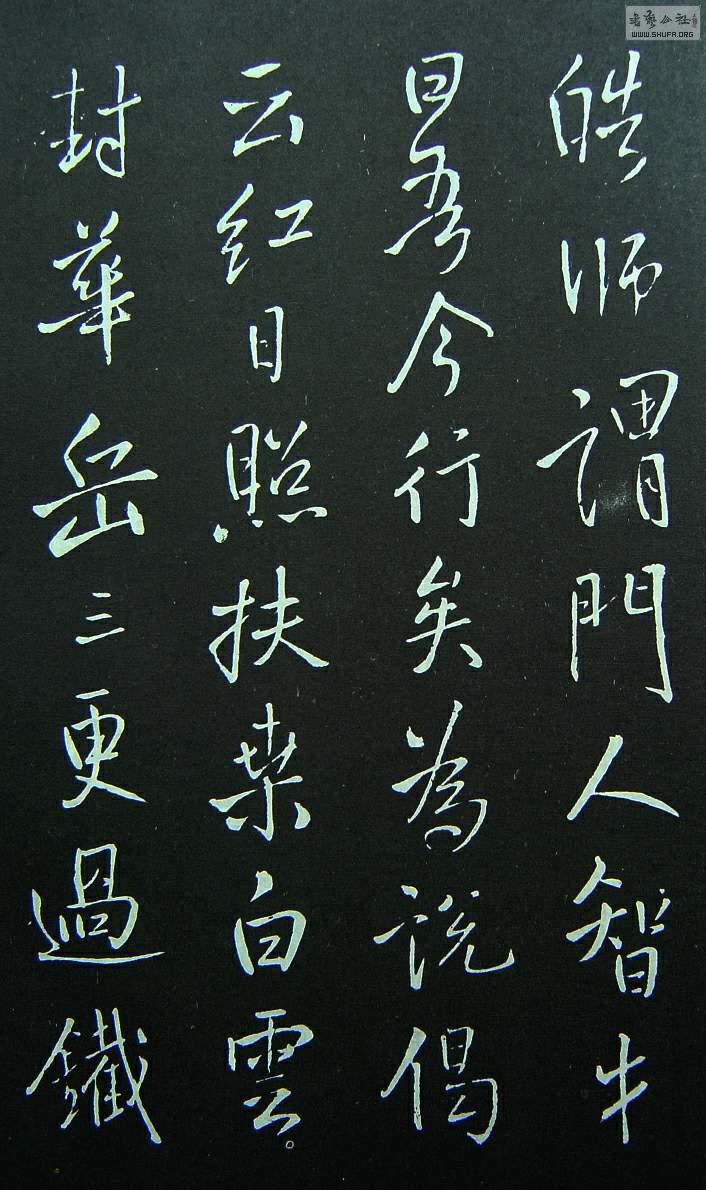 皓师謂門人智牛
曰吾今行矣為説偈
云红日照扶桑白雲
封華岳三更過鐵
WWW.SHUFA.ORG